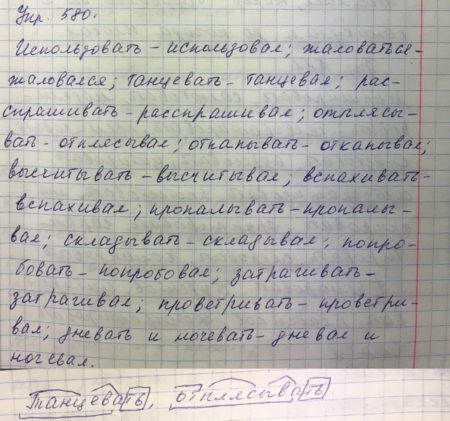 Упр. 580.
Использовать – использовал; жаловаться –
жаловался; танцевать – танцевал; рас-
спрашивать – расспрашивал; отплясы-
вать – отплясывал; откапывать – откапывал;
высчитывать – высчитывал; вспахивать –
вспахивал; пропалывать – пропалы-
вал; складывать – складывал; попро-
бовать – попробовал; затрагивать –
затрагивал; проветривать – проветри-
вал; дневать и ночевать – дневал и
ночевал.
Танцевать, отплясывать